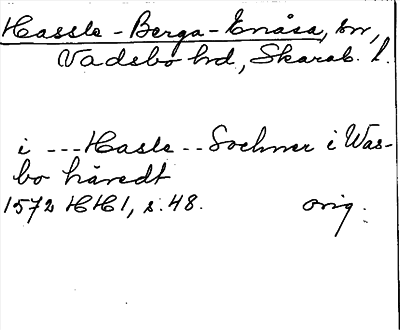 Hassle-Berga-Enåsa, sn,
Vadsbo hd, Skarab. l.
i --- Hasle -- Sochner i Was-
bo häredt
1572 HH 1, s. 48. orig.